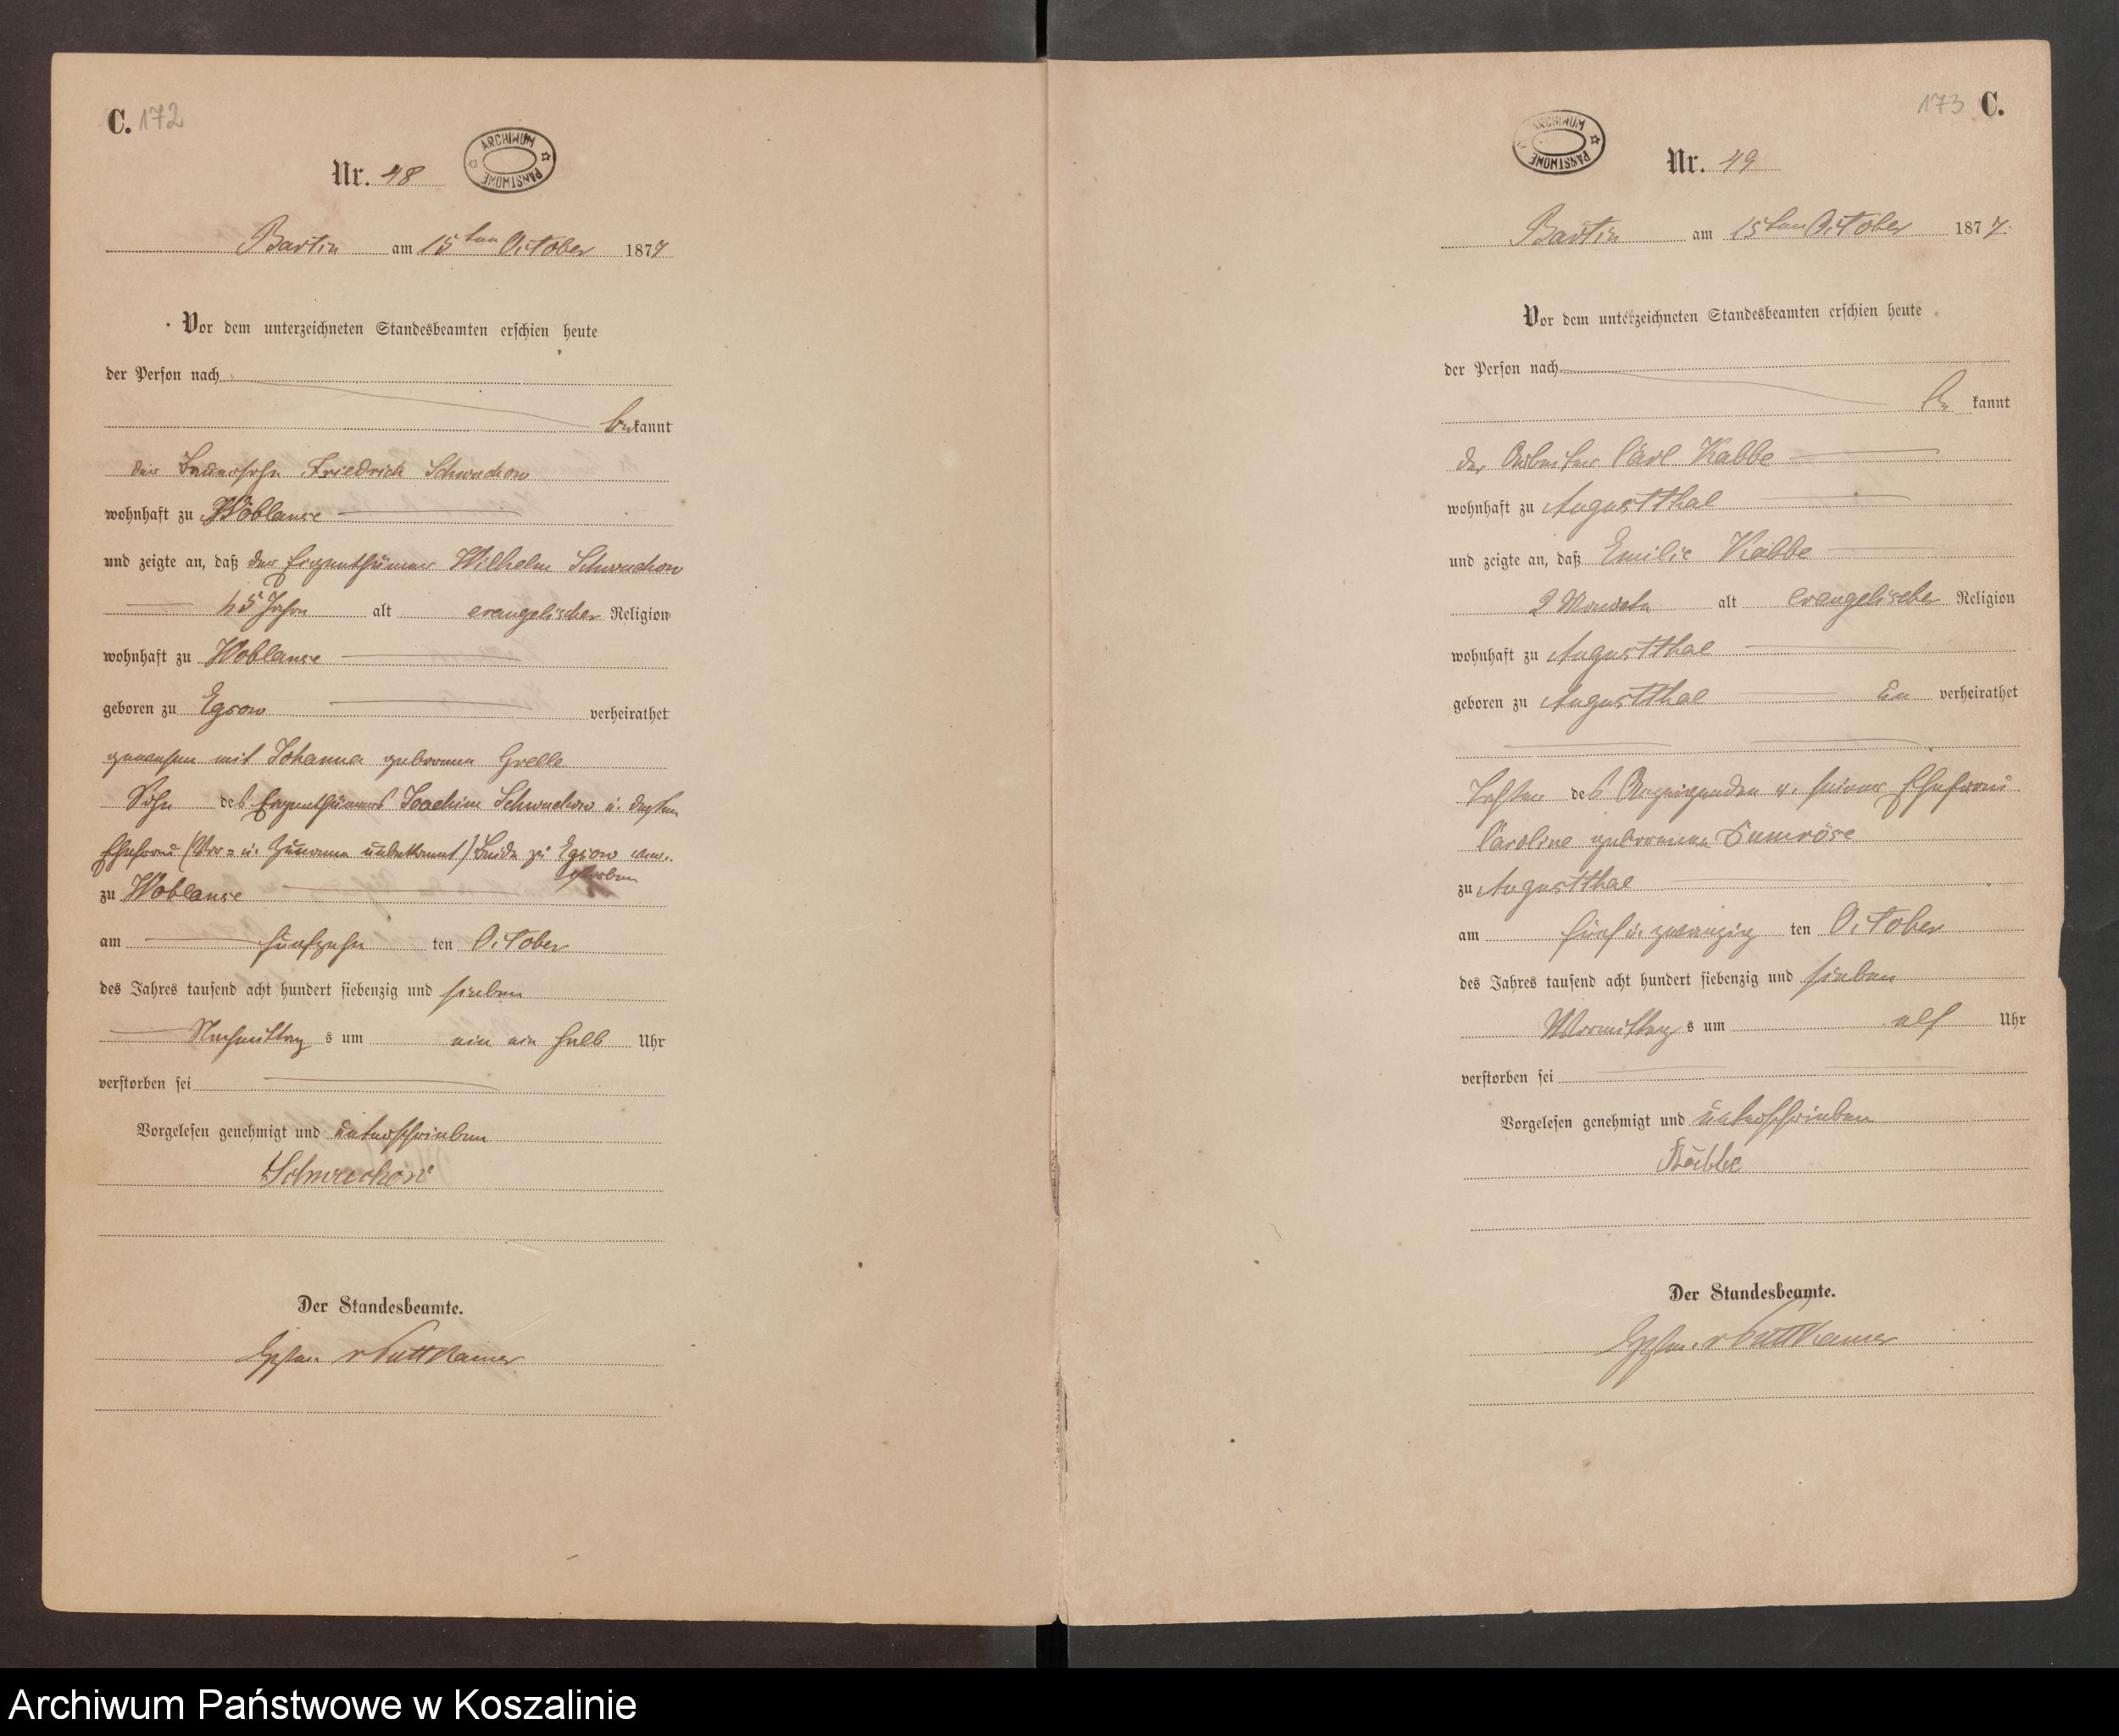 C. 172
ARCHIWUM PAŃSTWOWE
Nr. 48
Bartin am 15ten October 1877
Vor dem unterzeichneten Standesbeamten erschien heute
der Person nach
bekannt
der Bauersohn Friedrich Schwuchow
wohnhaft zu Woblanse
und zeigte an, daß der Eigenthümer Wilhelm Schwuchow
45 Jahre alt evangelischer Religion
wohnhaft zu Woblanse
geboren zu Egsow verheirathet
gewesen mit Johanna geborenen Grelle
Sohn des Eigenthümers Joachim Schwuchow u. dessen
Ehefrau (Vor= u. Zuname unbekannt) Beide zu Egsow ver-
storben
zu Woblanse
am fünfzehn ten October
des Jahres tausend acht hundert siebenzig und sieben
Nachmittag s um ein ein halb Uhr
verstorben sei
Vorgelesen genehmigt und unterschrieben
Schwuchow
Der Standesbeamte.
v Puttkamer
173 C.
ARCHIWUM PAŃSTWOWE
Nr. 49
Bartin am 15ten October 1877.
Vor dem unterzeichneten Standesbeamten erschien heute
der Person nach
be kannt
der Arbeiter Carl Kabbe
wohnhaft zu Augustthal
und zeigte an, daß Emilie Kabbe
2 Monate alt evangelischer Religion
wohnhaft zu Augustthal
geboren zu Augustthal un verheirathet
Tochter des Anzeigenden u. seiner Ehefrau
Caroline geborenen Dumröse
zu Augustthal
am fünf u. zwanzig ten October
des Jahres tausend acht hundert siebenzig und sieben
Vormittag s um elf Uhr
verstorben sei
Vorgelesen genehmigt und unterschrieben
Kabbe
Der Standesbeamte.
v Puttkamer
Archiwum Państwowe w Koszalinie